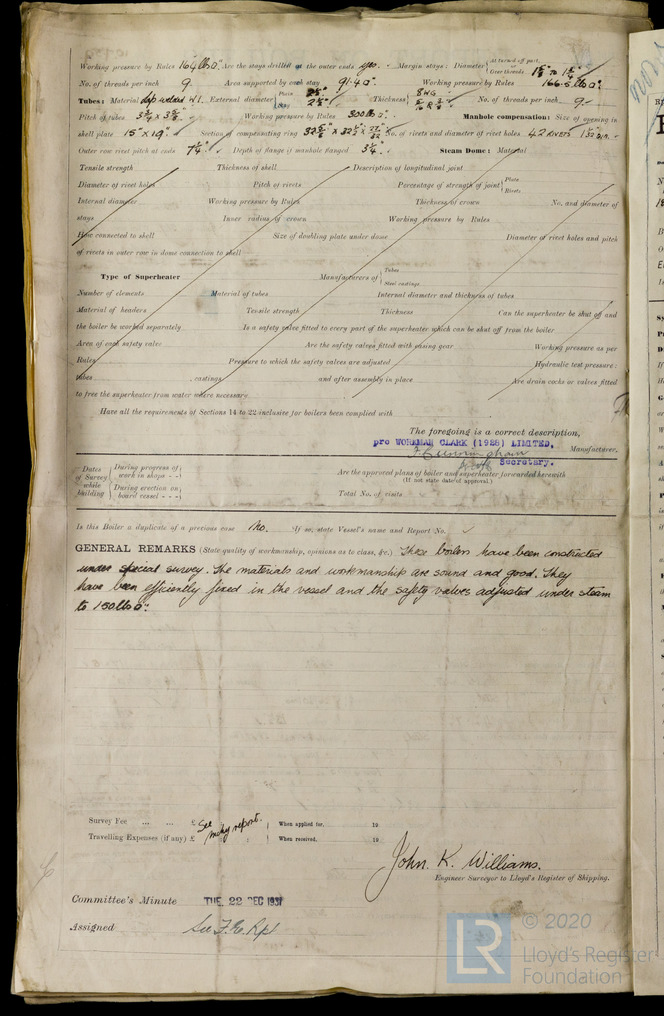 Working pressure by Rules 164 lbs □" Are the stays drilled at the outer ends yes. Margin stays: Diameter { At turned off part, or Over threads 1 5/8" TO 1 3/4"
No. of threads per inch 9. Area supported by each stay 91.4 □" Working pressure by Rules 166.5 lbs □".
Tubes: Material Lap welded W.I. External diameter { Plain 2 1/2" Stay 2 1/2" Thickness { 8 WG 5/16 & 3/8" No. of threads per inch 9.
Pitch of tubes 3 3/4" x 3 5/8" Working pressure by Rules 300 lbs □". Manhole compensation: Size of opening in
shell plate 15" x 19" Section of compensating ring No. of rivets and diameter of rivet holes 42 RIVETS 1 5/32" DIA.
Outer row rivet pitch at ends 7 1/4". Depth of flange if manhole flanged 3 1/4" Steam Dome: Material
Tensile strength Thickness of shell Description of longitudinal joint
Diameter of rivet holes Pitch of rivets Percentage of strength of joint { Plate Rivets
Internal diameter Working pressure by Rules Thickness of crown No. and diameter of
stays Inner radius of crown Working pressure by Rules
How connected to shell Size of doubling plate under dome Diameter of rivet holes and pitch
of rivets in outer row in dome connection to shell
Type of Superheater Manufacturers of { Tubes Steel castings
Number of elements Material of tubes Internal diameter and thickness of tubes
Material of headers Tensile strength Thickness Can the superheater be shut off and
the boiler be worked separately Is a safety valve fitted to every part of the superheater which can be shut off from the boiler
Area of each safety valve Are the safety valves fitted with easing gear Working pressure as per
Rules Pressure to which the safety valves are adjusted Hydraulic test pressure:
tubes castings and after assembly in place Are drain cocks or valves fitted
to free the superheater from water where necessary
Have all the requirements of Sections 14 to 22 inclusive for boilers been complied with
The foregoing is a correct description,
pro WORKMAN CLARK (1928) LIMITED,
Cunningham Manufacturer.
Secretary.
Dates of Survey while building { During progress of work in shops - - During erection on board vessel - - -
Are the approved plans of boiler and superheater forwarded herewith
(If not state date of approval.)
Total No. of visits
Is this Boiler a duplicate of a previous case No. If so, state Vessel's name and Report No.
GENERAL REMARKS (State quality of workmanship, opinions as to class, &c.) These boilers have been constructed
under special survey. The materials and workmanship are sound and good. They
have been efficiently fixed in the vessel and the safety valves adjusted under steam
to 150 lbs □".
Survey Fee ... ... £ See mchy report. When applied for, 19
Travelling Expenses (if any) £ When received, 19
John. K. Williams.
Engineer Surveyor to Lloyd's Register of Shipping.
Committee's Minute TUE. 22 DEC 1931
Assigned See F.E. Rpt
LR © 2020
Lloyd's Register
Foundation